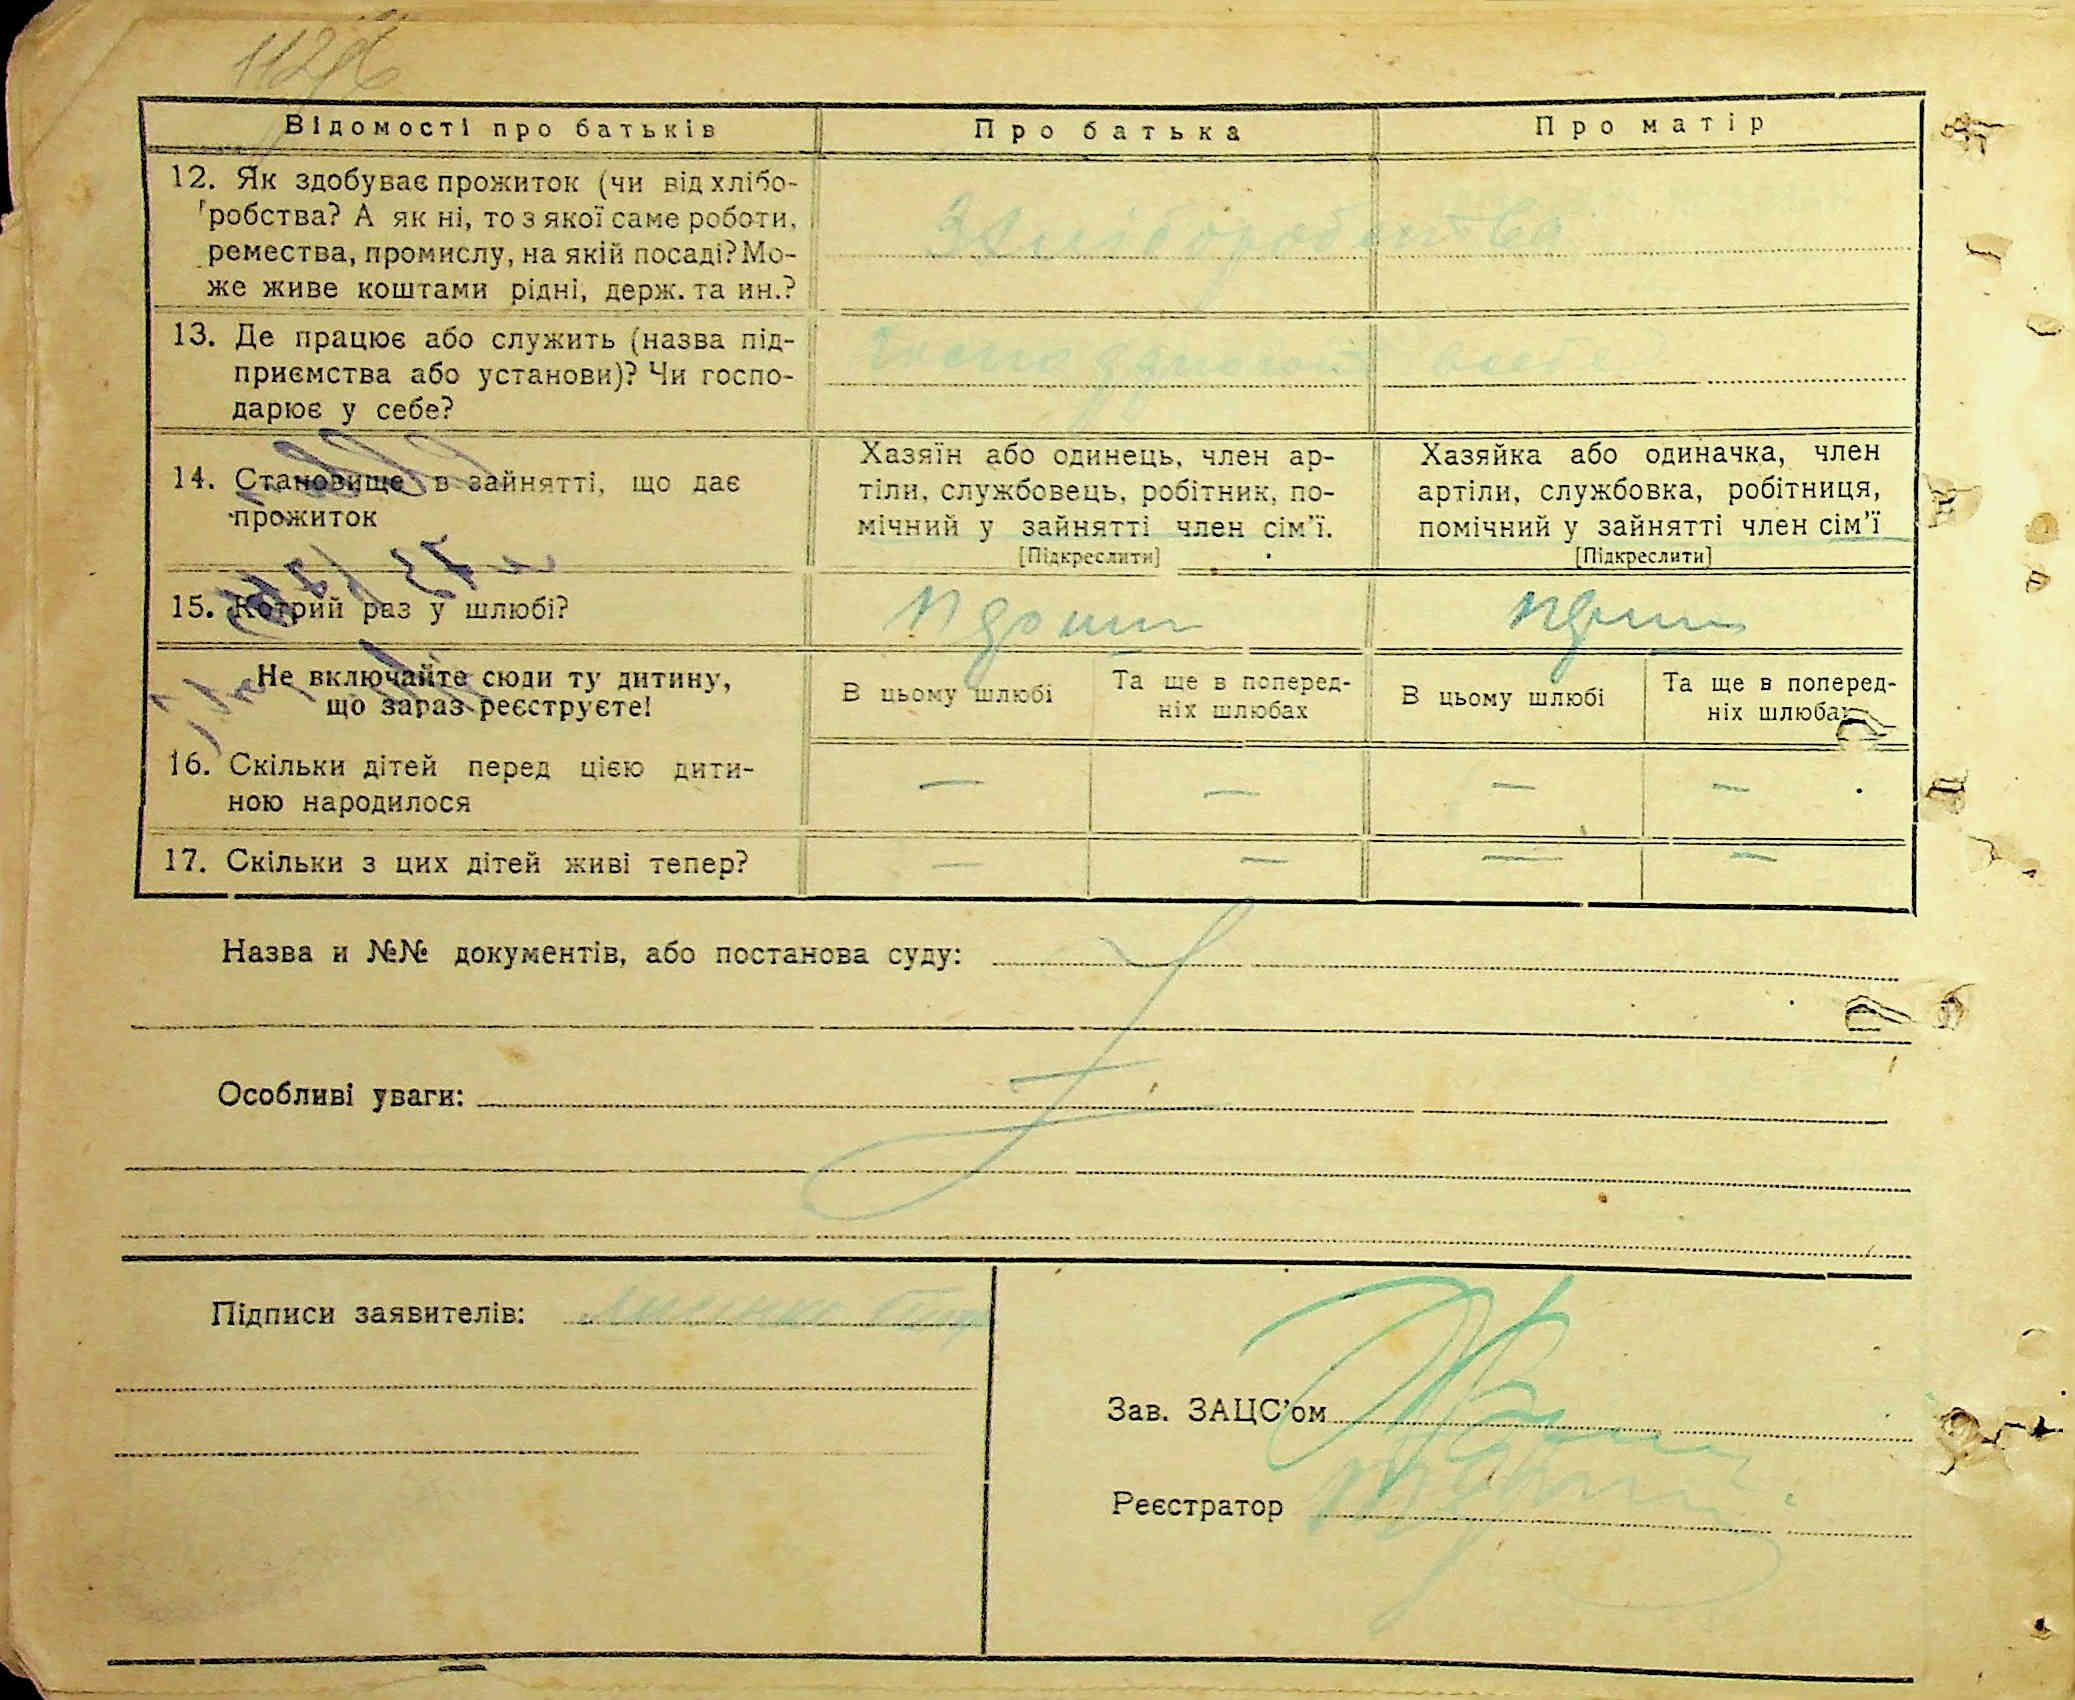 Відомості про батьків
Про батька
Про матір
12. Як здобуває прожиток (чи від хлібо-
робства? А як ні, то з якої саме роботи,
ремества, промислу, на якій посаді? Мо-
же живе коштами рідні, держ. та ин.?
З хліборобства
13. Де працює або служить (назва під-
приємства або установи)? Чи госпо-
дарює у себе?
14. Становище в зайнятті, що дає
прожиток
Хазяїн або одинець, член ар-
тіли, службовець, робітник, по-
мічний у зайнятті член сім'ї.
[Підкреслити]
Хазяйка або одиначка, член
артіли, службовка, робітниця,
помічний у зайнятті член сім'ї
[Підкреслити]
15. Котрий раз у шлюбі?
Не включайте сюди ту дитину,
що зараз реєструєте!
В цьому шлюбі
Та ще в поперед-
ніх шлюбах
В цьому шлюбі
Та ще в поперед-
ніх шлюбах
16. Скільки дітей перед цією дити-
ною народилося
— — — —
17. Скільки з цих дітей живі тепер?
— — — —
Назва и №№ документів, або постанова суду:
Особливі уваги:
Підписи заявителів:
Зав. ЗАЦС'ом
Реєстратор